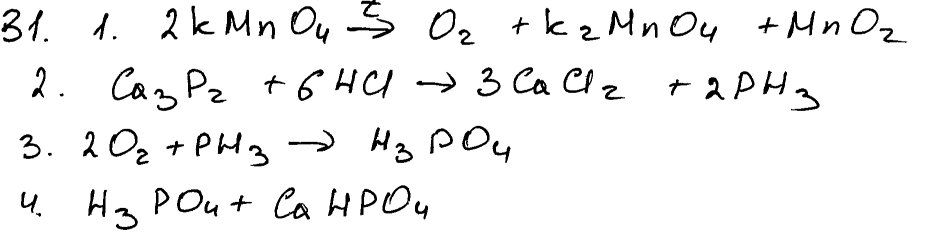 31. 1. 2KMnO₄ →ᵗ O₂ + K₂MnO₄ + MnO₂
2. Ca₃P₂ + 6HCl → 3CaCl₂ + 2PH₃
3. 2O₂ + PH₃ → H₃PO₄
4. H₃PO₄ + CaHPO₄